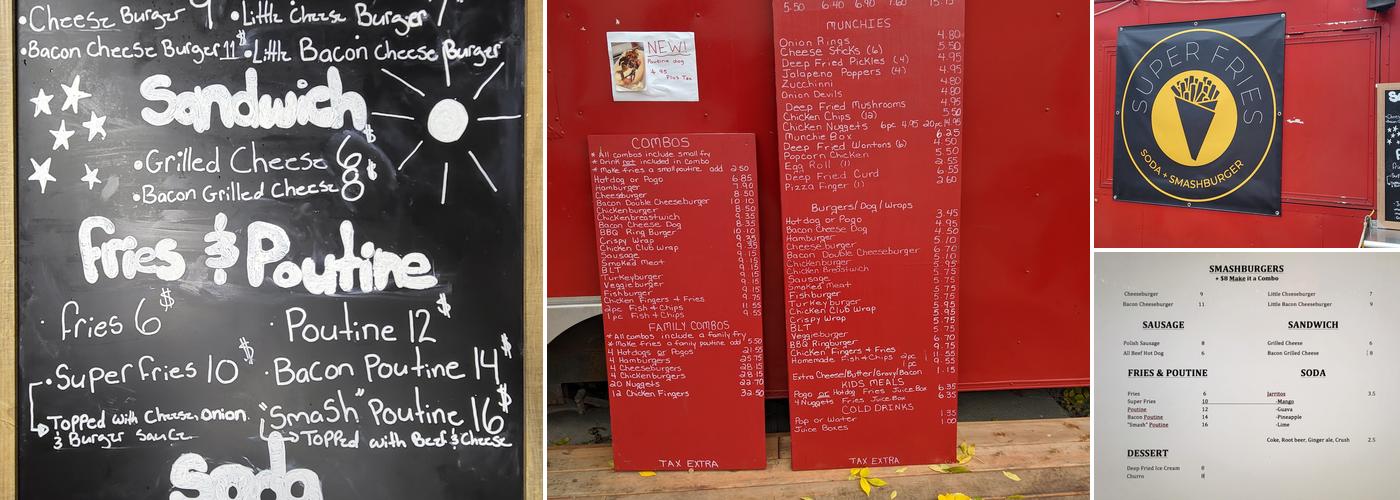 • Cheese Burger 9 • Little Cheese Burger 7
• Bacon Cheese Burger 11$ • Little Bacon Cheese Burger
Sandwich
• Grilled Cheese 6$
• Bacon Grilled Cheese 8$
Fries & Poutine
· fries 6$ · Poutine 12$
• Super fries 10$ · Bacon Poutine 14$
Topped with Cheese, onion & Burger Sauce
"Smash" Poutine 16$
Topped with Beef & Cheese
Soda
NEW!
Poutine dog
Plus Tax
COMBOS
* All combos include small fry
* Drink not included in Combo
* Make fries a small poutine add 2.50
Hotdog or Pogo 6.85
Hamburger 7.90
Cheesburger 8.50
Bacon Double Cheeseburger 10.10
Chickenburger 8.50
Chickenbreastwich 9.35
Bacon Cheese Dog
BBQ Ring Burger 10.10
Crispy Wrap
Chicken Club Wrap
Sausage 9.15
Smoked Meat 9.15
BLT 9.15
Turkeyburger 9.15
Veggieburger 9.15
Fishburger 9.15
Chicken Fingers + Fries 9.75
2pc Fish & Chips 11.55
1 pc Fish & Chips 9.55
FAMILY COMBOS
* All combos include a family fry
* Make fries a family poutine add 5.50
4 Hotdogs or Pogos 21.55
4 Hamburgers 25.75
4 Cheeseburgers 28.15
4 Chickenburgers 28.15
20 Nuggets 22.70
12 Chicken Fingers 32.50
TAX EXTRA
5.50 6.40 6.90 7.60 15.75
MUNCHIES
Onion Rings 4.80
Cheese Sticks (6) 5.50
Deep Fried Pickles (4) 4.95
Jalapeno Poppers (4) 4.95
Zucchinni 4.80
Onion Devils 4.80
Deep Fried Mushrooms 4.95
Chicken Chips (12) 5.50
Chicken Nuggets 6pc 4.95 20pc 14.95
Munchie Box 6.25
Deep Fried Wontons (6) 4.50
Popcorn Chicken 5.50
Egg Roll (1) 2.55
Deep Fried Curd 6.55
Pizza Finger (1) 2.60
Burgers/Dog/Wraps
Hotdog or Pogo 3.45
Bacon Cheese Dog 4.95
Hamburger 4.50
Cheeseburger 5.10
Bacon Double Cheeseburger 6.70
Chickenburger 5.10
Chicken Breastwich 5.95
Sausage 5.75
Smoked Meat 5.75
Fishburger 5.75
Turkeyburger 5.75
Chicken Club Wrap 5.95
Crispy Wrap 5.95
BLT 5.75
Veggieburger 5.75
BBQ Ringburger 6.70
Chicken Fingers + Fries 9.75
Homemade Fish & Chips 2pc 11.55
1pc 9.55
Extra Cheese/Butter/Gravy/Bacon 1.15
KIDS MEALS
Pogo or Hotdog Fries Juice Box 6.35
4 Nuggets Fries Juice Box 6.35
COLD DRINKS
Pop or Water 1.35
Juice Boxes 1.00
TAX EXTRA
SUPER FRIES
SODA + SMASHBURGER
SMASHBURGERS
+ $8 Make it a Combo
Cheeseburger 9 Little Cheeseburger 7
Bacon Cheeseburger 11 Little Bacon Cheeseburger 9
SAUSAGE SANDWICH
Polish Sausage 8 Grilled Cheese 6
All Beef Hot Dog 6 Bacon Grilled Cheese 8
FRIES & POUTINE SODA
Fries 6 Jarritos 3.5
Super Fries 10 -Mango
Poutine 12 -Guava
Bacon Poutine 14 -Pineapple
"Smash" Poutine 16 -Lime
Coke, Root beer, Ginger ale, Crush 2.5
DESSERT
Deep Fried Ice Cream 8
Churro 8